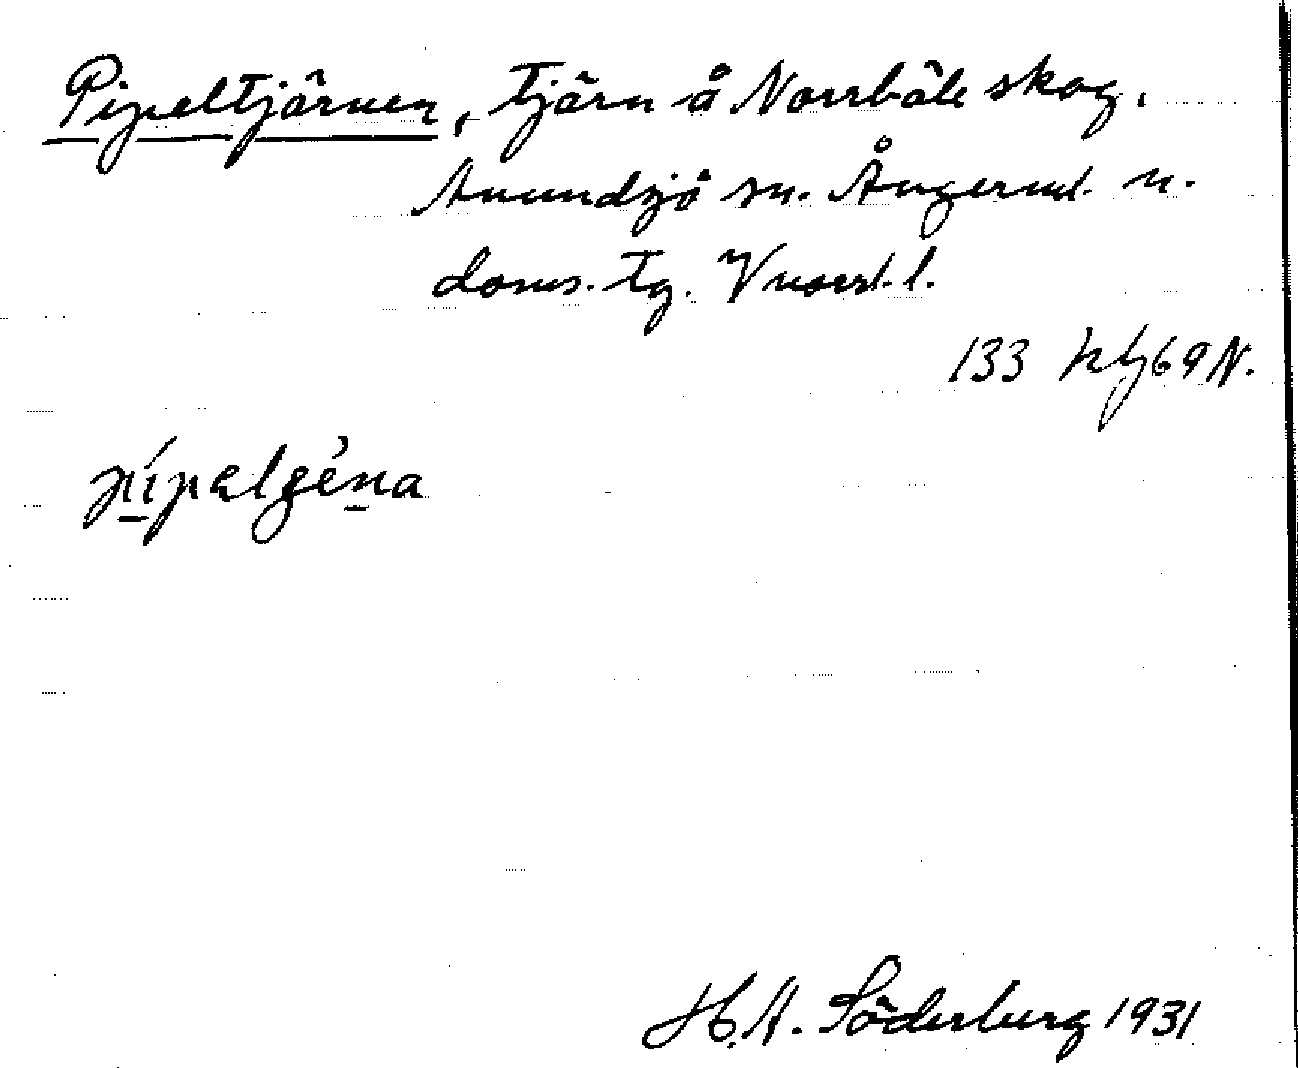 Pipeltjärnen, tjärn å Norrböle skog.
Anundsjö sn. Ångerml. n.
doms. tg. Vnorrl. l.
133 69 N.
pípelgéna
H. A. Söderberg 1931